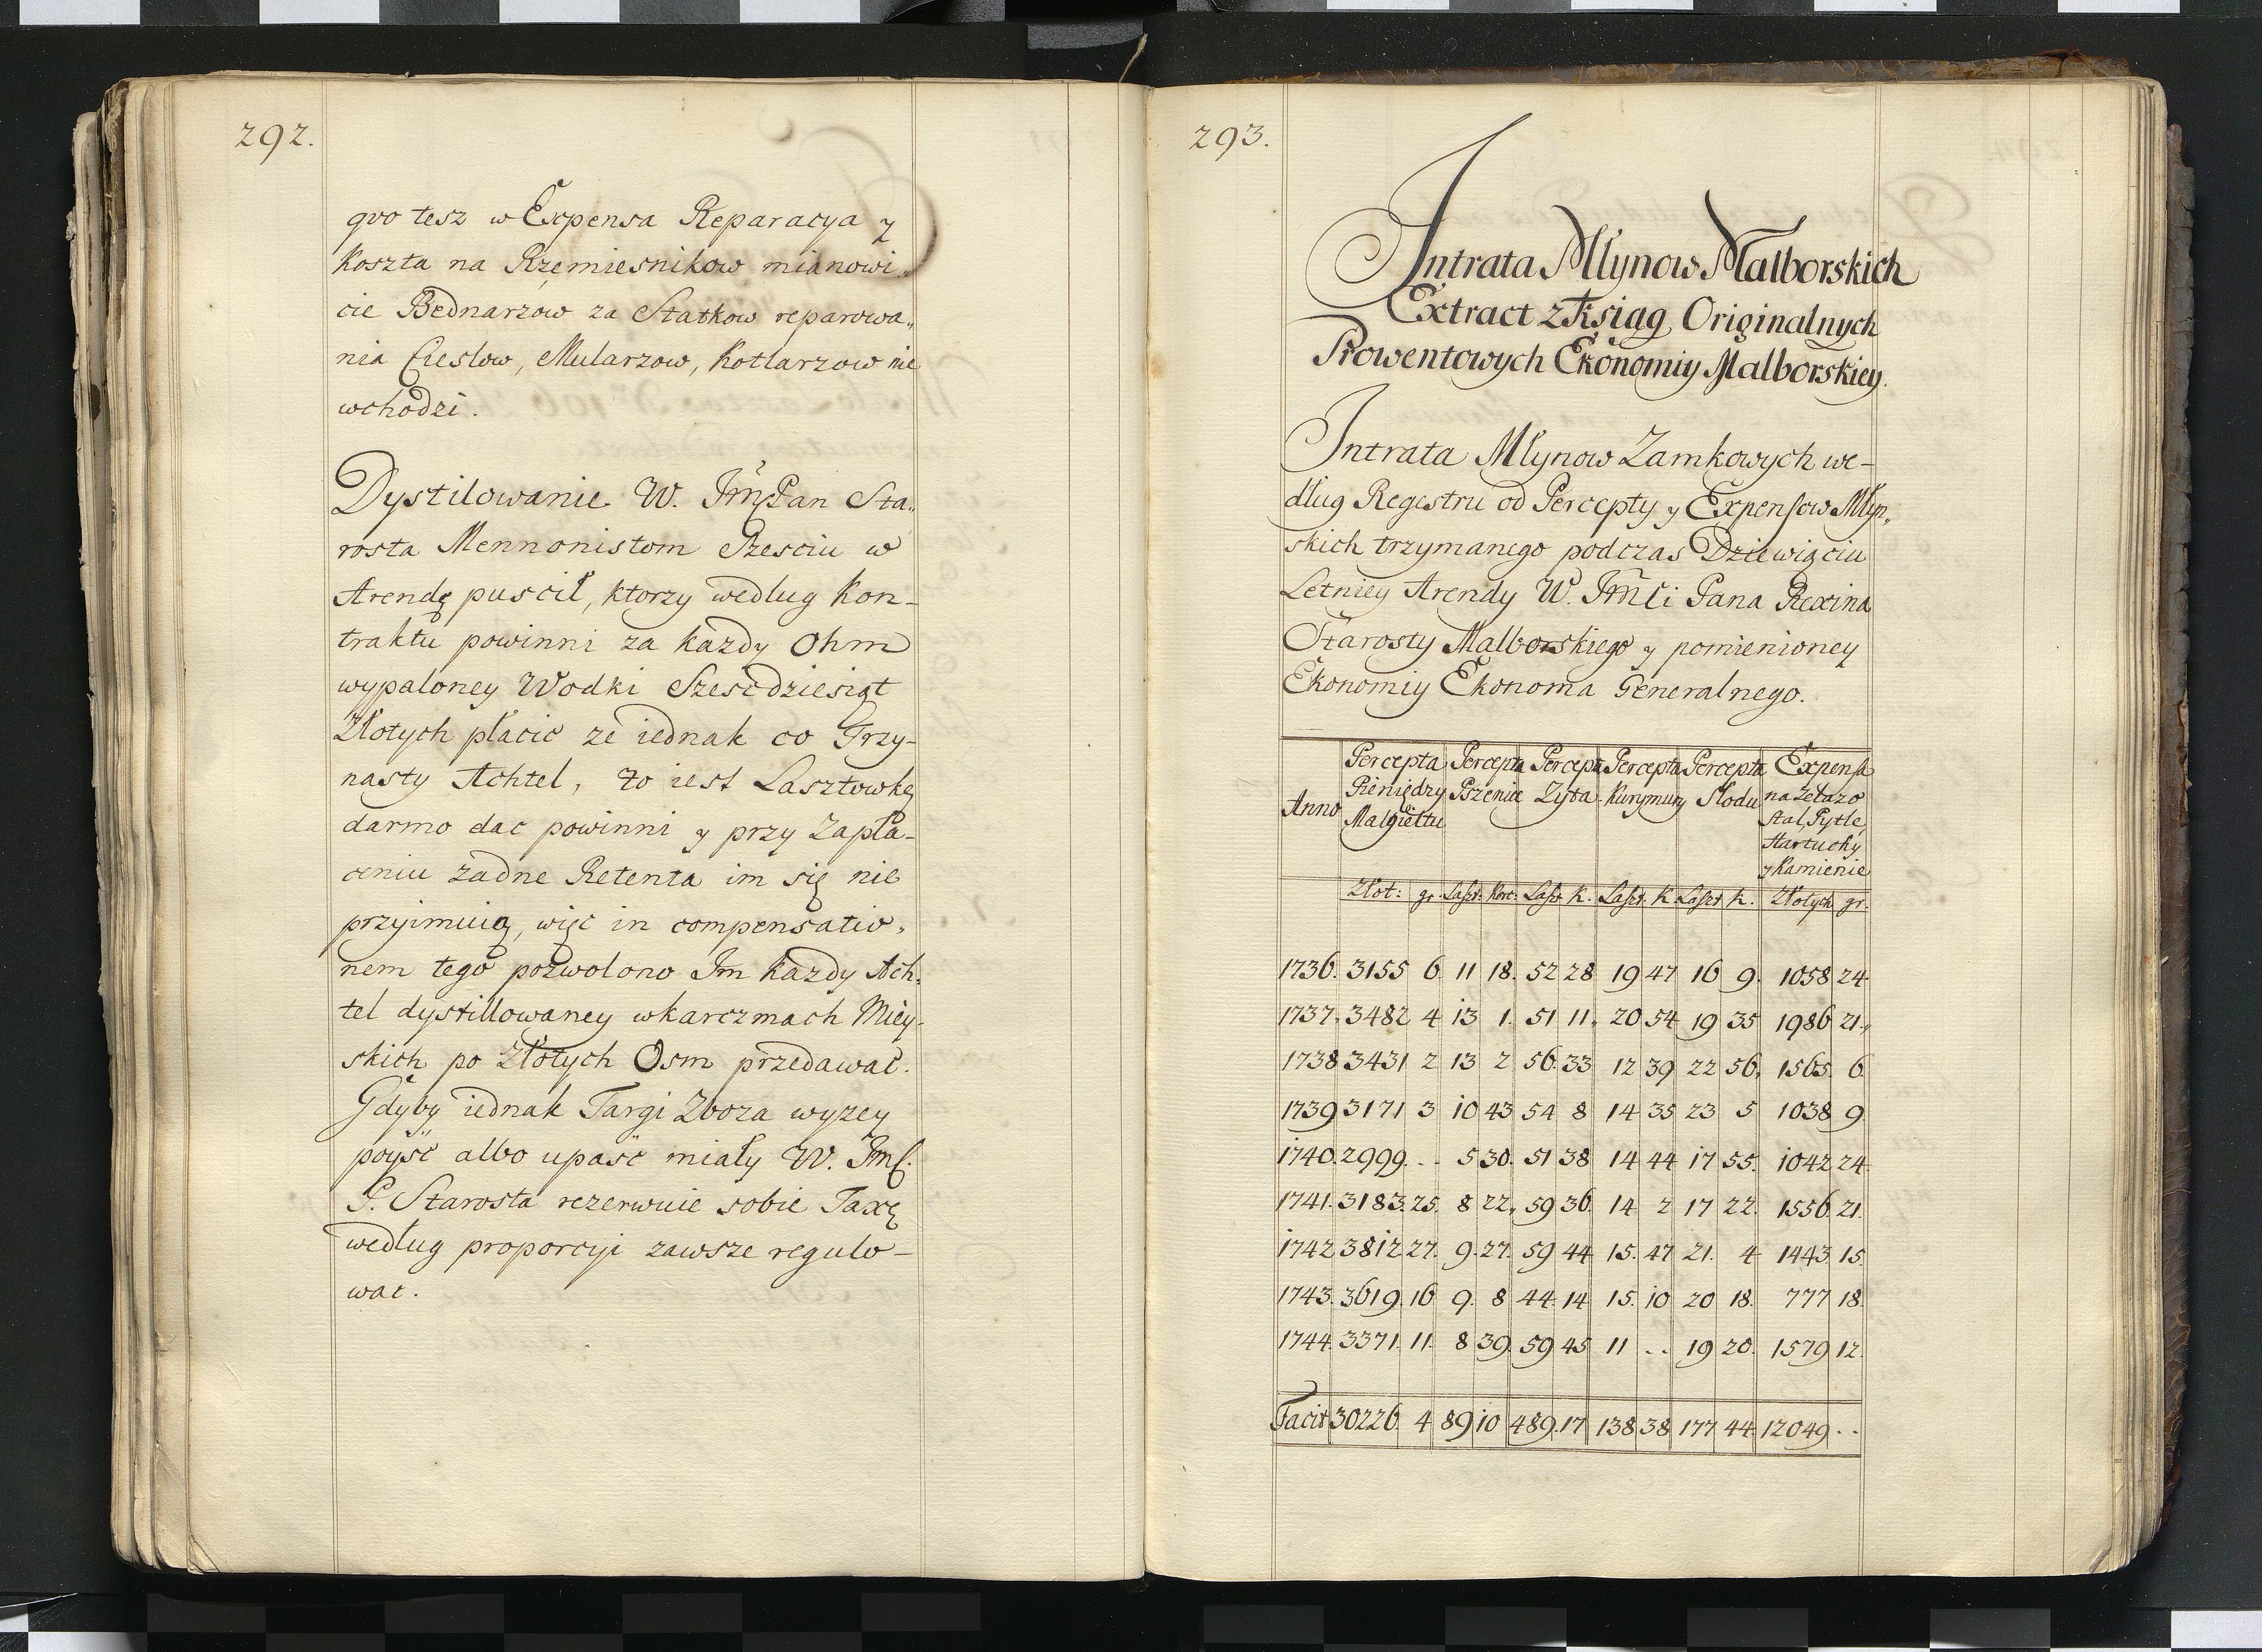 292.
qvo tesz w Expensa Reparacya y
Koszta na Rzemiesnikow mianowi„
cie Bednarzow za Statkow reparowa„
nia Cieslow, Mularzow, Kotlarzow nie
wchodzi.
Dystilowanie W. Jmć Pan Sta„
rosta Mennonistom Szesciu w
Arendę puscił, ktorzy według Kon-
traktu powinni za kazdy Ohm
wypaloney Wodki Szescdziesiąt
Złotych płacic ze iednak co Trzy-
nasty Achtel, to iest Lasztowkę
darmo dac powinni y przy Zapła-
ceniu zadne Retenta im się nie
przyimuią, więc in compensatio„
nem tego pozwolono Im kazdy Ach„
tel dystillowaney w karczmach Miey-
skich po Złotych Osm przedawać.
Gdyby iednak Targi Zboza wyzey
poyść albo upaść miały W. Jmć.
P. Starosta rezerwuie sobie Taxę
według proporcyi zawsze regulo-
wac.
293.
Intrata Młynow Malborskich
Extract z Ksiąg Originalnych
Prowentowych Ekonomiy Malborskiey.
Intrata Młynow Zamkowych we-
dlug Regestru od Percepty y Expensow Młyn„
skich trzymanego podczas Dziewięciu
Letniey Arendy W. Jmći Pana Rexina
Starosty Malborskiego y pomienioney
Ekonomiy Ekonoma Generalnego.
Anno Percepta Pieniędzy Percepta Pszenic Percepta Zyta Percepta Kurymury Percepta Słodu Expensa
na Zelazo
Stal, Pytle,
Hartuchy
y Kamienie
Złot: gr. Laszt: Korc: Laszt K. Laszt. K Laszt K. Złotych gr.
1736. 3155 6. 11 18. 52 28 19 47 16 9. 1058 24.
1737. 3482 4 13 1. 51 11. 20 54 19 35 1986 21.
1738 3431 2 13 2 56. 33 12 39 22 56. 1565. 6.
1739 3171 3 10 43 54 8 14 35 23 5 1038 9.
1740. 2999. .. 5 30. 51 38 14 44 17 55. 1042 24.
1741. 3183. 25. 8 22. 59 36. 14 2 17 22. 1556. 21.
1742 3812 27. 9. 27. 59 44 15. 47 21. 4 1443. 15.
1743. 3619. 16 9. 8 44. 14 15. 10 20 18. 777 18.
1744. 3371. 11. 8 39. 59 45 11 .. 19 20. 1579 12.
Facit 30226. 4 89 10 489. 17 138 38 177 44. 12049 ..